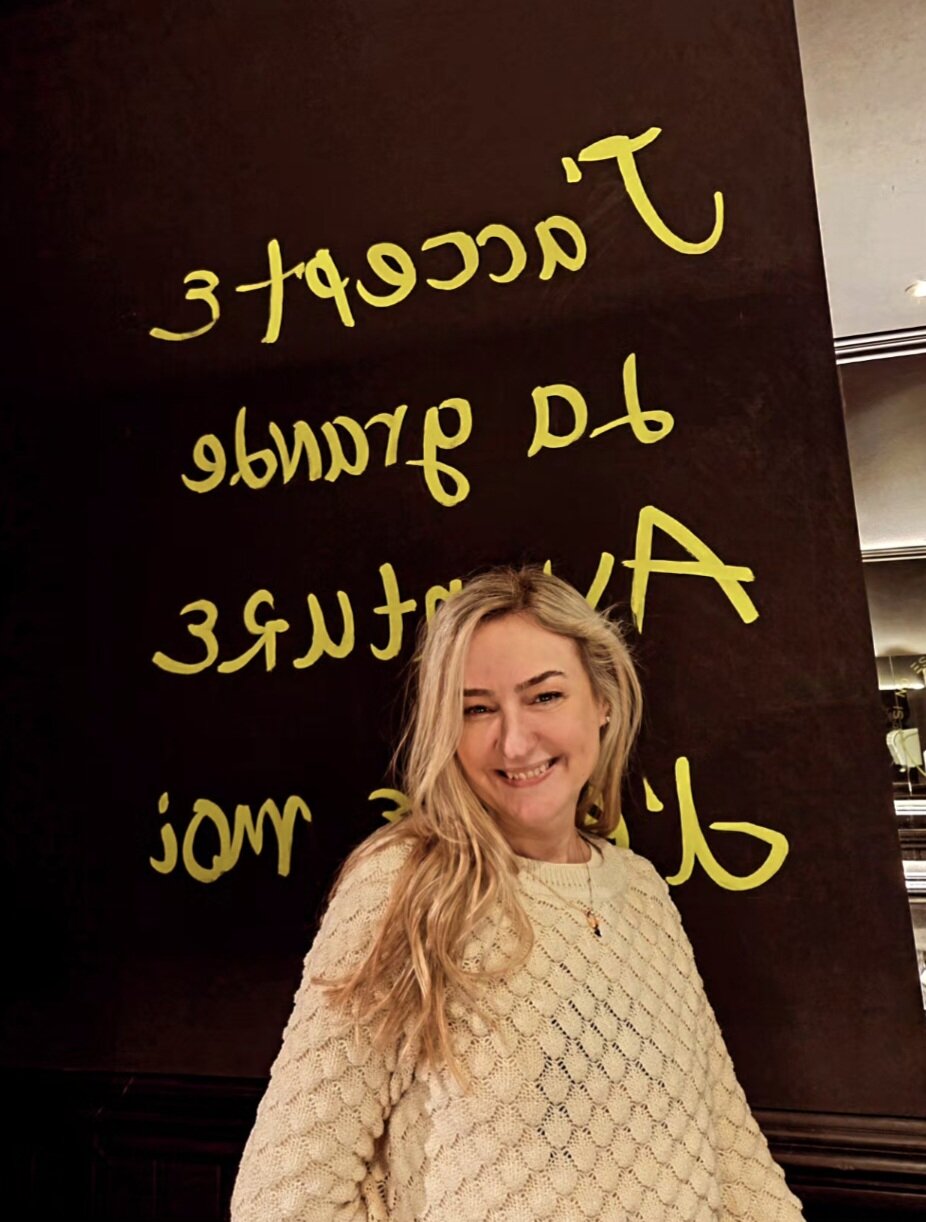 J'accepte
La grande
AventURE
moi